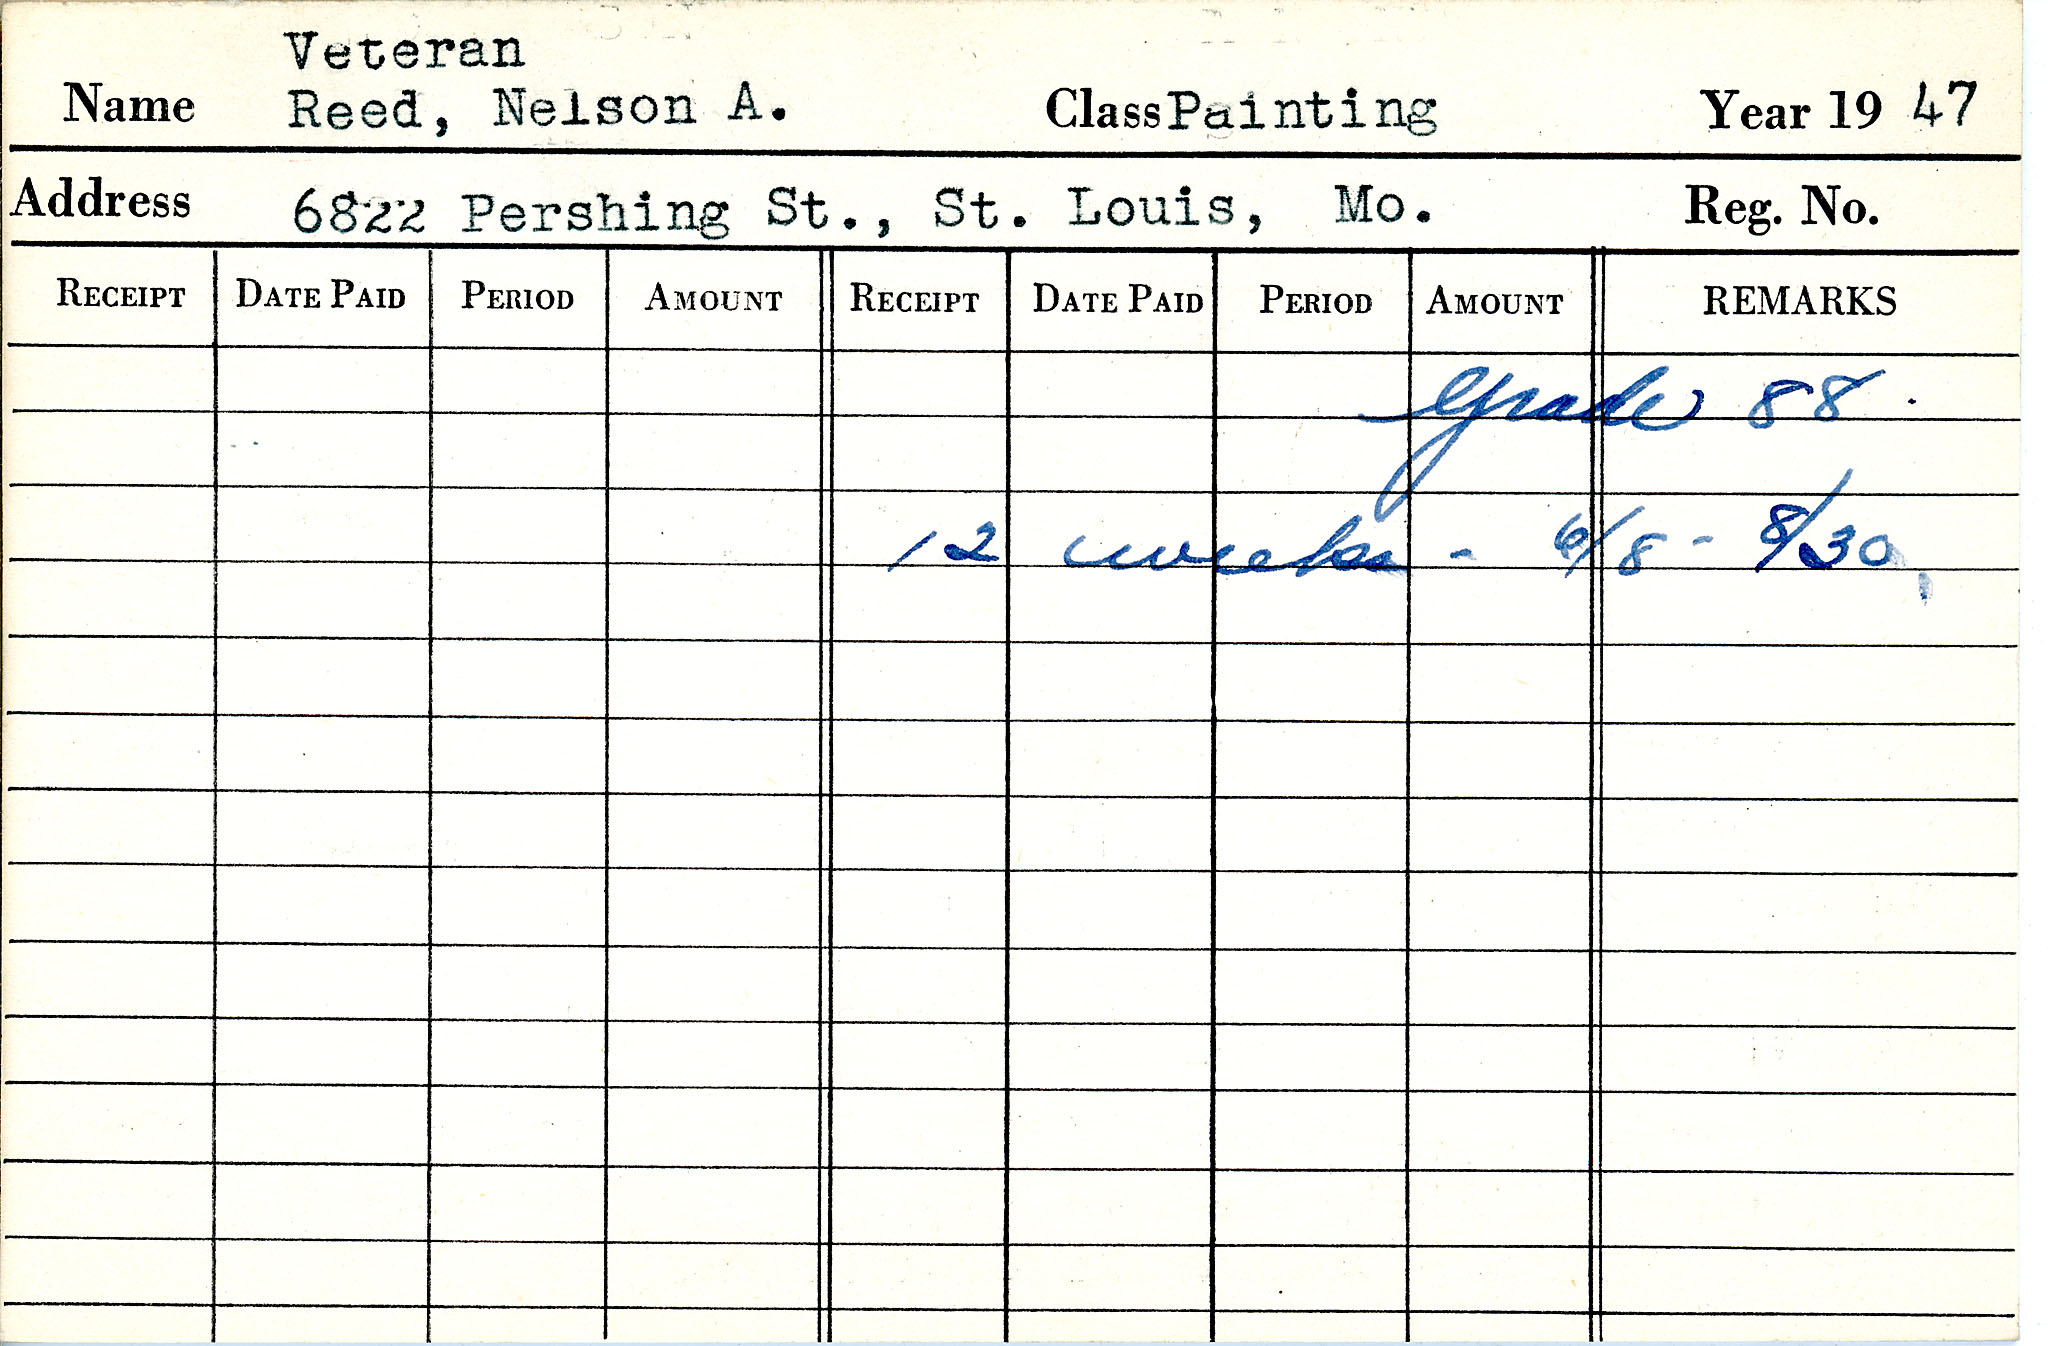 Veteran
Name Reed, Nelson A. Class Painting Year 19 47
Address 6822 Pershing St., St. Louis, Mo. Reg. No.
RECEIPT DATE PAID PERIOD AMOUNT RECEIPT DATE PAID PERIOD AMOUNT REMARKS
Grade 88
12 weeks - 6/8 - 8/30